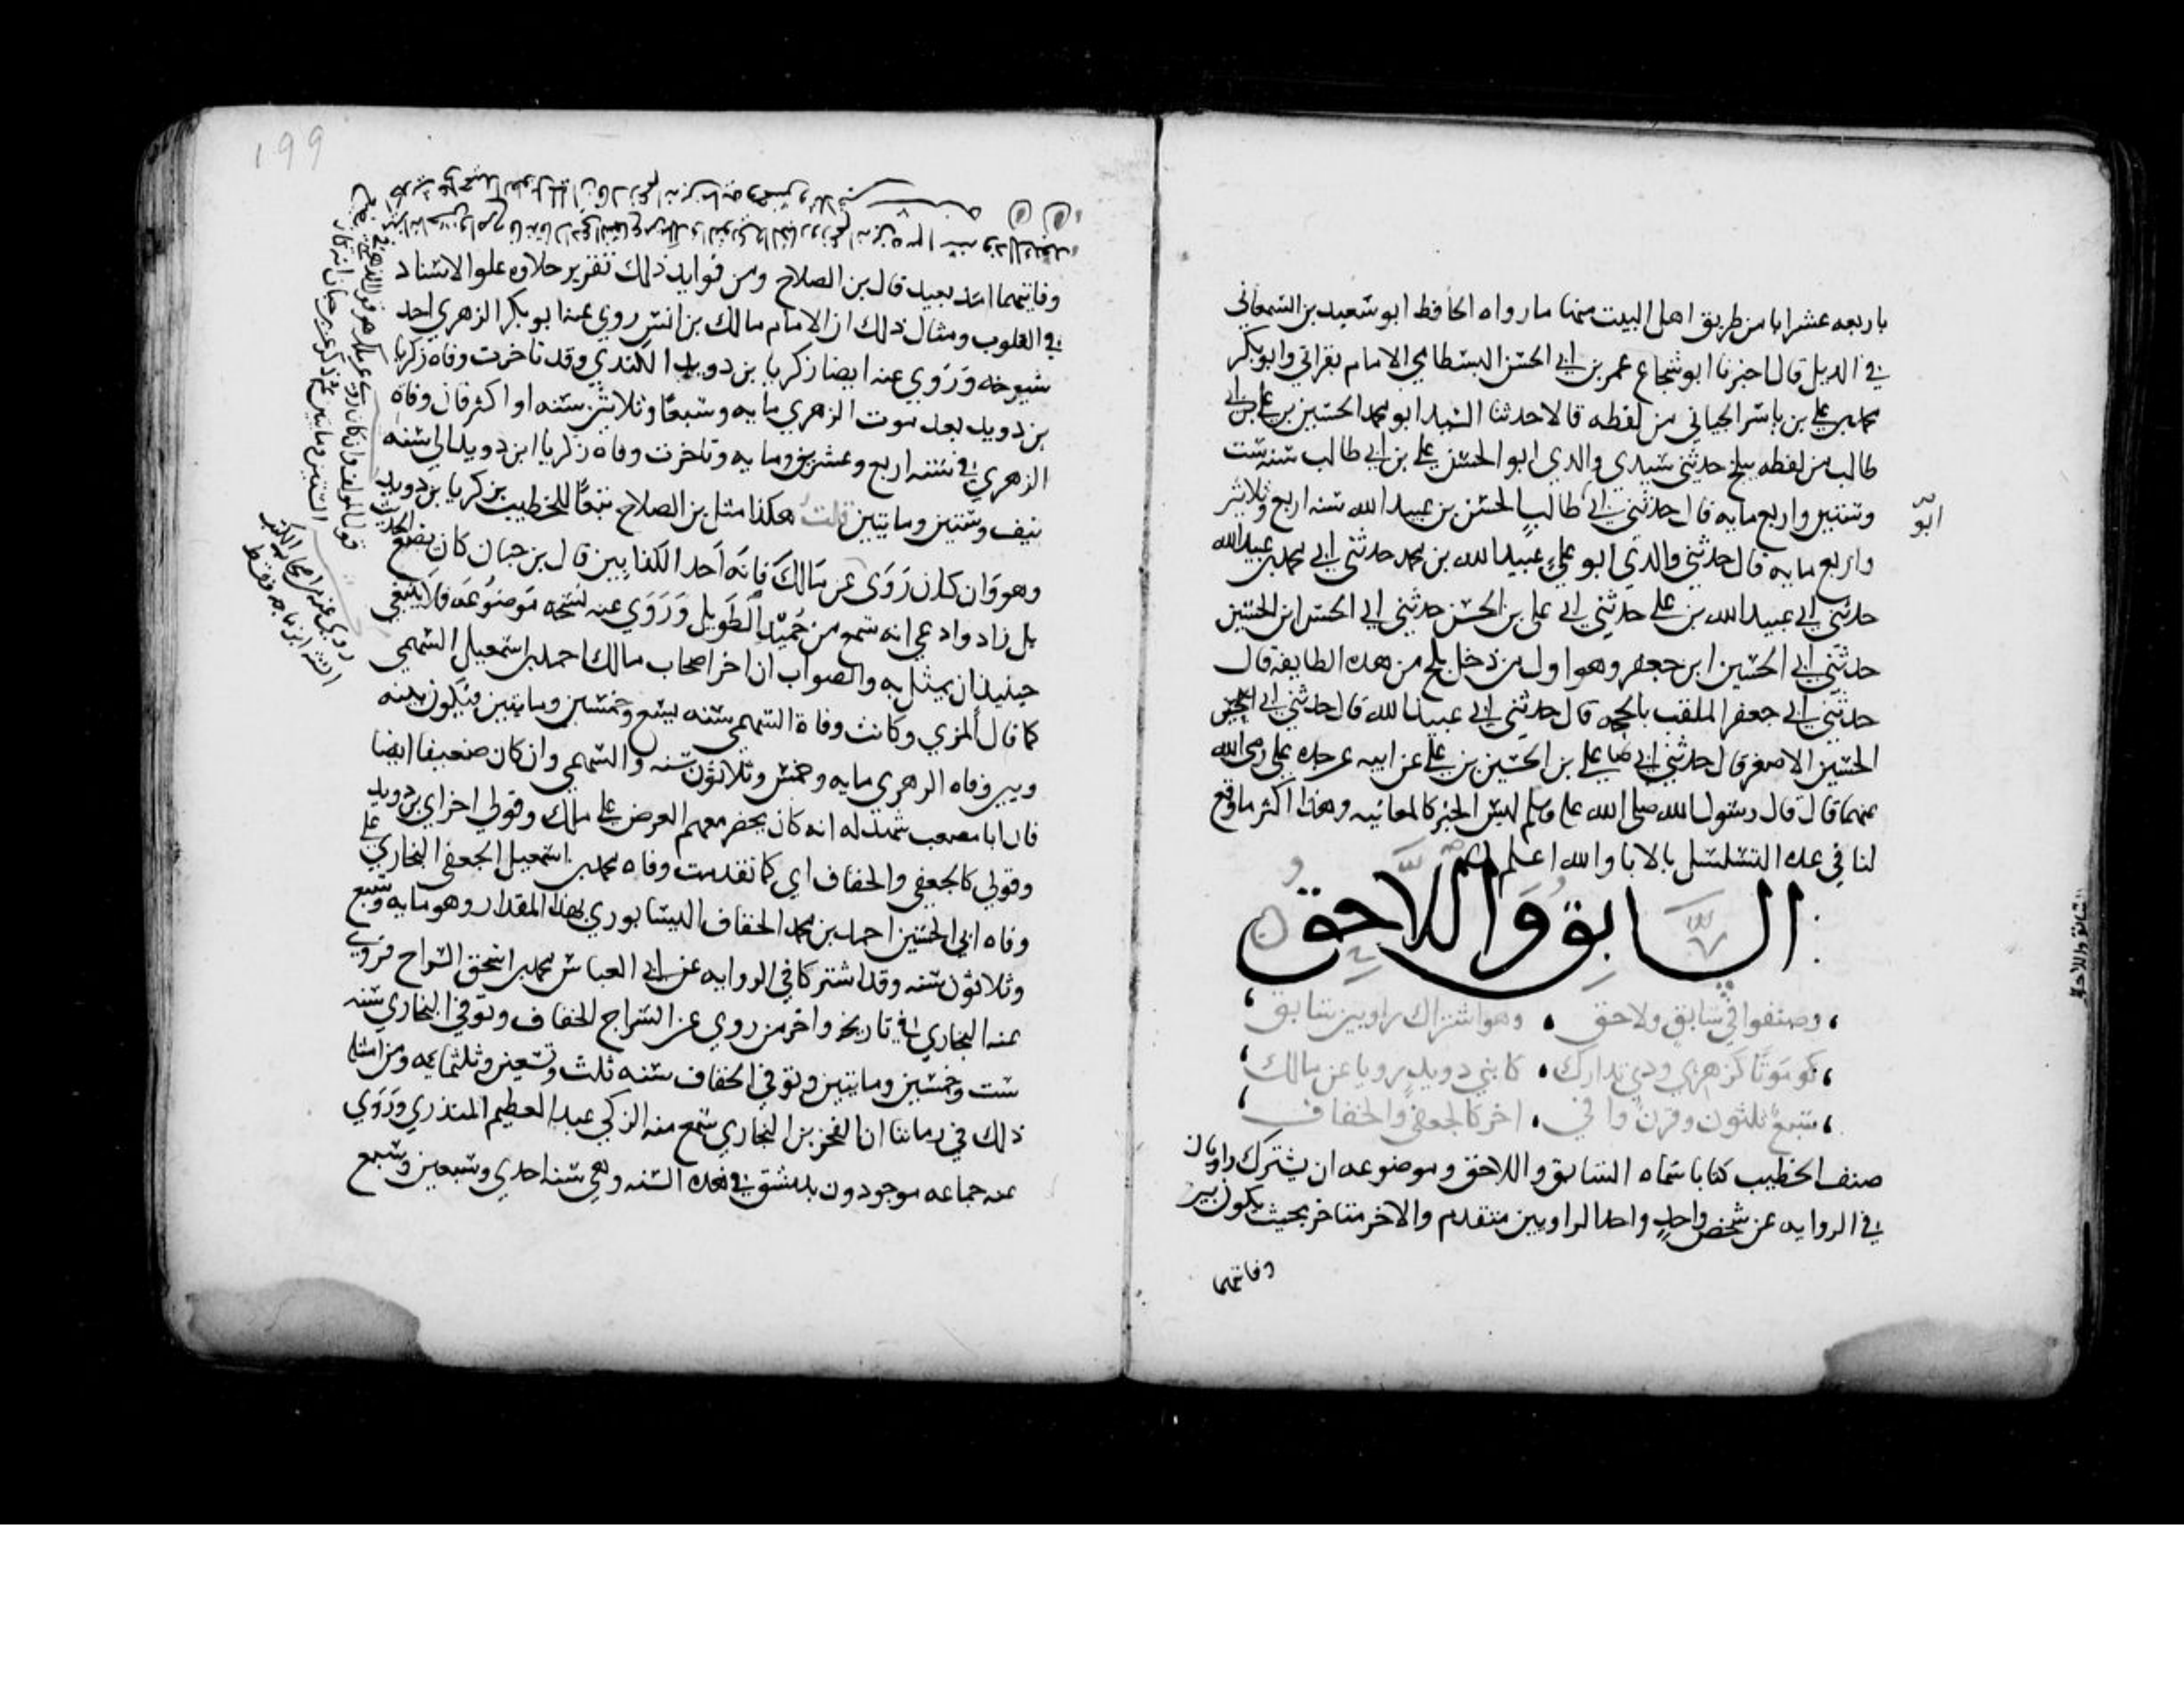 باربعه عشر ابا من طريق اهل البيت منها ما رواه الحافظ ابو سعيد بن السمعاني
في الذيل قال اخبرنا ابو شجاع عمر بن ابي الحسن البسطامي الامام بقراتي وابو بكر
محمد بن علي بن ياسر الجياني من لفظه قالا حدثنا السيد ابو محمد الحسين بن علي بن ابي
طالب من لفظه ببلخ حدثني سيدي والدي ابو الحسن علي بن ابي طالب سنه ست
وستين واربع مايه قال حدثني ابي طالب الحسن بن عبيد الله سنه اربع وثلاثين
ابو
واربع مايه قال حدثني والدي ابو علي عبيد الله بن محمد حدثني ابي محمد بن عبيد الله
حدثني ابي عبيد الله بن علي حدثني ابي علي بن الحسن حدثني ابي الحسن ابن الحسين
حدثني ابي الحسين ابن جعفر وهو اول من دخل بلخ من هذه الطايفه قال
حدثني ابي جعفر الملقب بالحجه قال حدثني ابي عبيد الله قال حدثني ابي
الحسين الاصغر قال حدثني ابي علي بن الحسين بن علي عن ابيه عن جده علي رضي الله
عنهما قال قال رسول الله صلى الله عليه وسلم ليس الخبر كالمعاينه وهذا اكثر ما وقع
لنا في عده التسلسل بالابا والله اعلم
السابق واللاحق
وصنفوا في سابق ولاحق وهو اشتراك راويين سابق
موتا كزهري وذي تدارك كابن دويد رويا عن مالك
سبع ثلثون وقرن وافي اخر كالجعفي والخفاف
صنف الخطيب كتابا سماه السابق واللاحق وموضوعه ان يشترك راويان
في الروايه عن شخص واحد واحد الراويين متقدم والاخر متاخر بحيث يكون بين
وفاتهما
السابق واللاحق
199
وفاتيهما امد بعيد قال بن الصلاح ومن فوايد ذلك تقرير حلاوه علو الاسناد
في القلوب ومثال ذلك ان الامام مالك بن انس روي عنه ابو بكر الزهري احد
شيوخه وروي عنه ايضا زكريا بن دويد الكندي وقد تاخرت وفاه زكريا
بن دويد بعد موت الزهري مايه وسبعا وثلاثين سنه او اكثر فان وفاة
الزهري في سنه اربع وعشرين ومايه وتاخرت وفاه زكريا ابن دويد الي سنه
نيف وستين ومايتين قلت هكذا مثل بن الصلاح تبعا للخطيب بزكريا بن دويد
وهو وان كان روى عن مالك فانه احد الكذابين قال بن حبان كان يضع الحديث
بل زاد وادعي انه سمع من حميد الطويل وروي عنه نسخه موضوعه فلا ينبغي
حينيذ ان يمثل به والصواب ان اخر اصحاب مالك احمد بن اسمعيل السهمي
كما قال المزي وكانت وفاة السهمي سنه تسع وخمسين ومايتين فيكون بينه
وبين وفاه الزهري مايه وخمس وثلاثون سنه والسهمي وان كان ضعيفا ايضا
فان ابا مصعب شهد له انه كان يحضر معهم العرض علي ملك وقولي اخر اي بن دويد
وقولي كالجعفي والخفاف اي كما تقدمت وفاه محمد بن اسمعيل الجعفي البخاري علي
وفاه ابي الحسين احمد بن محمد الخفاف النيسابوري بهذا المقدار وهو مايه وسبع
وثلاثون سنه وقد اشتركا في الروايه عن ابي العباس محمد بن اسحق السراج فروي
عنه البخاري في تاريخه واخر من روي عن السراج الخفاف وتوفي البخاري سنه
ست وخمسين ومايتين وتوفي الخفاف سنه ثلث وتسعين وثلثمايه ومن امثله
ذلك في زماننا ان الفخر بن البخاري سمع منه الزكي عبد العظيم المنذري وروي
عنه جماعه موجودون بدمشق في هذه السنه وهي سنه احدي وسبعين وسبع